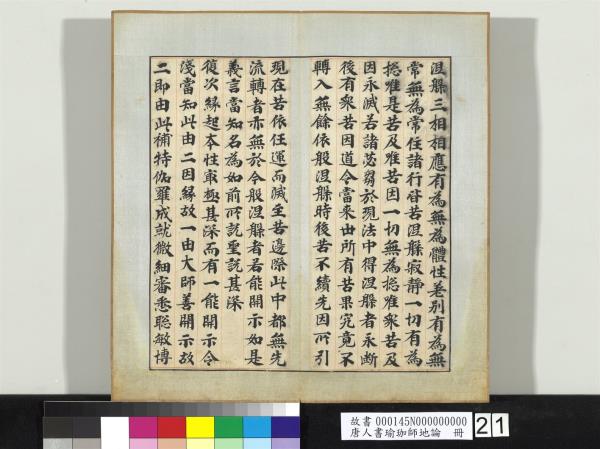 涅槃三相相應有為無為體性差別有為無
常無為常住諸行皆苦涅槃寂靜一切有為
揔唯是苦及唯苦因一切無為揔唯衆苦及
因永滅若諸苾芻於現法中得涅槃者永斷
後有衆苦因道令當來世所有苦果究竟不
轉入無餘依般涅槃時後苦不續先因所引
現在苦依任運而滅至苦邊際此中都無先
流轉者亦無於今般涅槃者若能開示如是
義言當知名為如前所說聖說甚深
復次緣起本性最極甚深而有一能開示令
淺當知此由二因緣故一由大師善開示故
二即由此補特伽羅成就微細審悉聰敏博
故書 000145N000000000
唐人書瑜珈師地論 冊
21